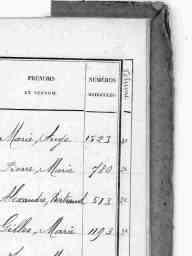 PRÉNOMS
ET SURNOM.
NUMÉROS
MATRICULES
Marie, Ange 1523
Pierre, Marie 700
Alexandre, Bertrand 513
Gilles, Marie 1193